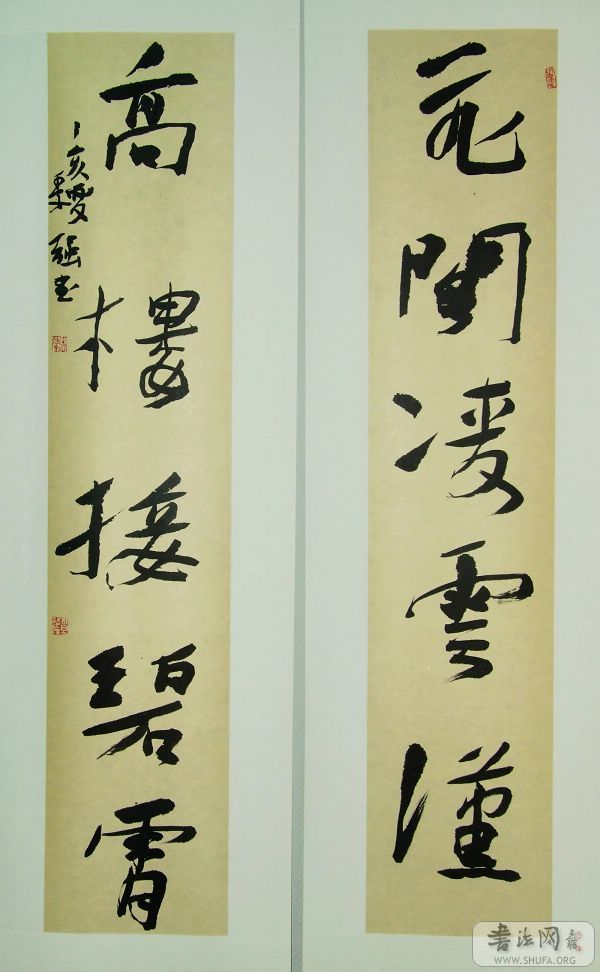 飛閣凌雲漢
高樓接碧霄
丁亥
強書
書法网
WWW.SHUFA.ORG